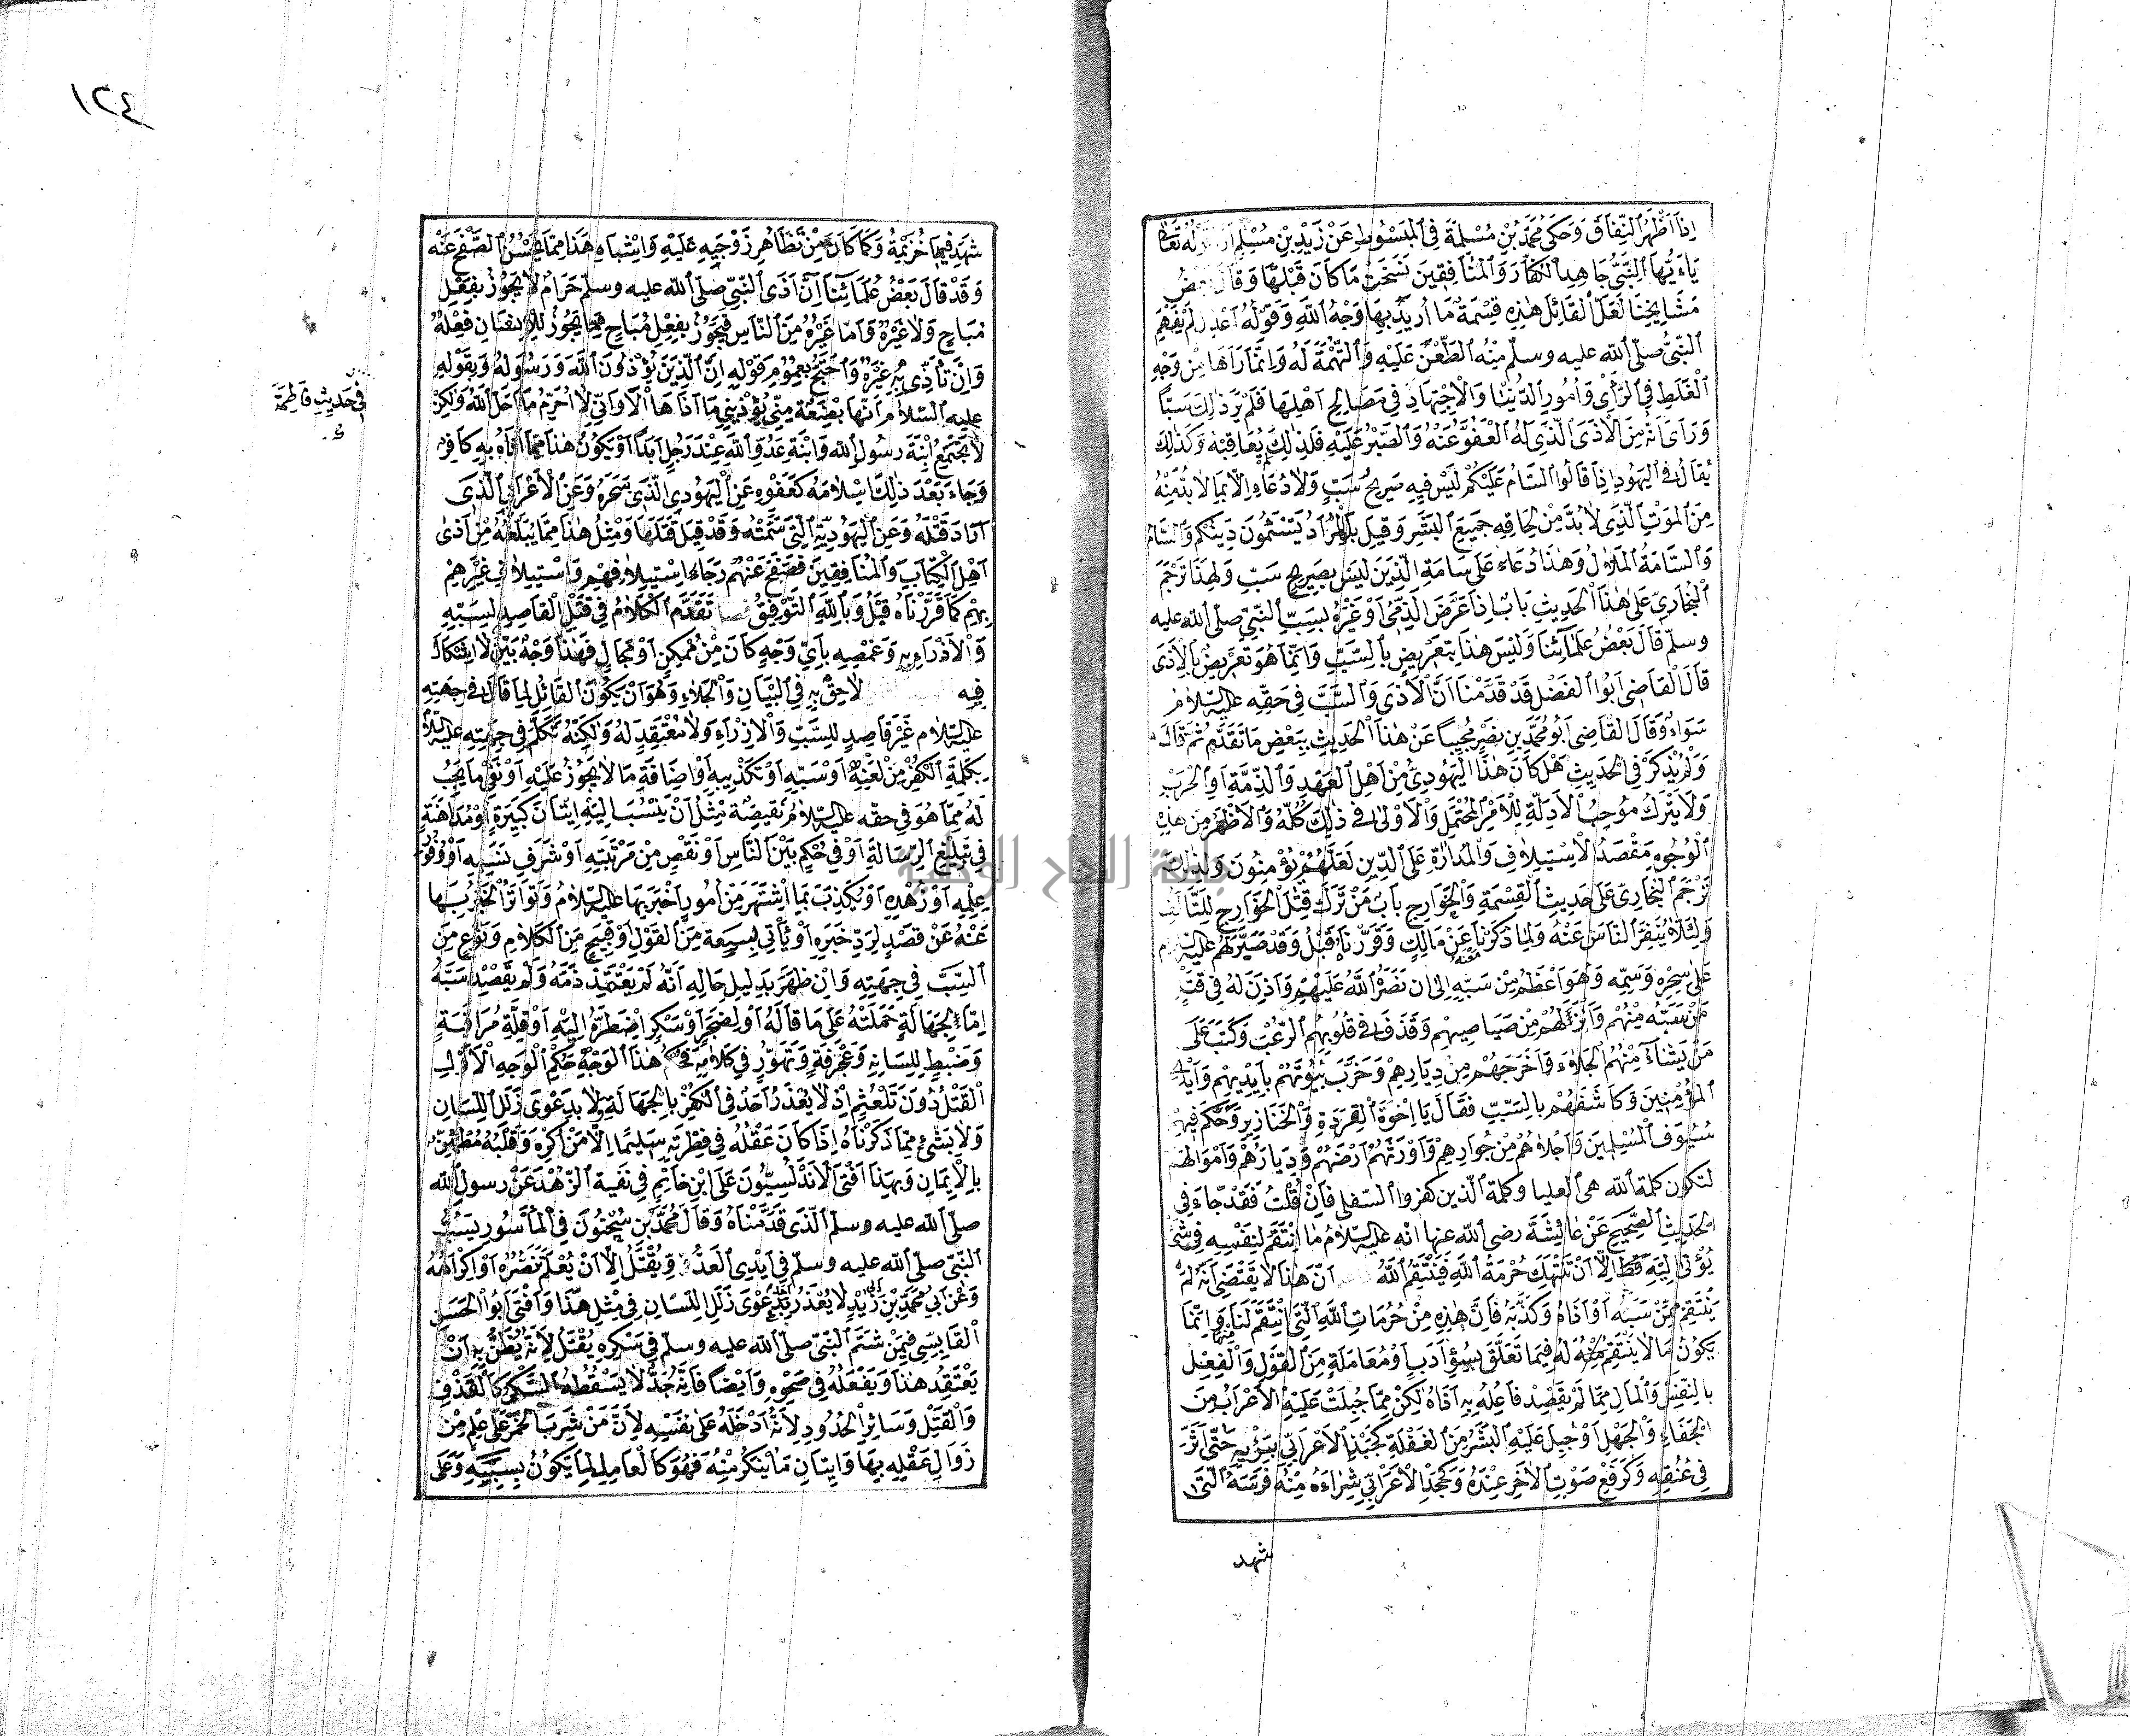 إِذَا أَظْهَرَ النِّفَاقَ وَحَكَى مُحَمَّدُ بْنُ مُسْلِمَةَ فِي الْمَبْسُوطِ عَنْ زَيْدِ بْنِ مُسْلِمٍ تَعَا
يَا أَيُّهَا النَّبِيُّ جَاهِدِ الْكُفَّارَ وَالْمُنَافِقِينَ نَسَخَتْ مَا كَانَ قَبْلَهَا وَقَالَ بَعْضُ
مَشَايِخِنَا لَعَلَّ الْقَائِلَ هٰذِهِ قِسْمَةٌ مَا أُرِيدَ بِهَا وَجْهُ اللهِ وَقَوْلُهُ اعْدِلْ لَمْ يَفْهَمِ
النَّبِيُّ صلّى الله عليه وسلّم مِنْهُ الطَّعْنَ عَلَيْهِ وَالتُّهْمَةَ لَهُ وَإِنَّمَا رَآهَا مِنْ وَجْهِ
الْغَلَطِ فِي الرَّأْيِ وَأُمُورِ الدُّنْيَا وَالْاِجْتِهَادِ فِي مَصَالِحِ أَهْلِهَا فَلَمْ يَرَ ذٰلِكَ سَبًّا
وَرَأَى أَنَّهُ مِنَ الْأَذَى الَّذِي لَهُ الْعَفْوُ عَنْهُ وَالصَّبْرُ عَلَيْهِ فَلِذٰلِكَ لَمْ يُعَاقِبْهُ وَكَذٰلِكَ
يُقَالُ فِي الْيَهُودِ إِذَا قَالُوا السَّامُ عَلَيْكُمْ لَيْسَ فِيهِ صَرِيحُ سَبٍّ وَلَا دُعَاءٌ إِلَّا بِمَا لَا بُدَّ مِنْهُ
مِنَ الْمَوْتِ الَّذِي لَا بُدَّ مِنْ لِحَاقِهِ جَمِيعَ الْبَشَرِ وَقِيلَ بَلِ الْمُرَادُ تَسْئَمُونَ دِينَكُمْ وَالسَّأَمُ
وَالسَّامَةُ الْمَلَالُ وَهٰذَا دُعَاءٌ عَلَى سَامَةِ الدِّينِ لَيْسَ بِصَرِيحِ سَبٍّ وَلِهٰذَا تَرْجَمَ
الْبُخَارِيُّ عَلَى هٰذَا الْحَدِيثِ بَابٌ إِذَا عَرَّضَ الذِّمِّيُّ أَوْ غَيْرُهُ بِسَبِّ النَّبِيِّ صلّى الله عليه
وسلّم قَالَ بَعْضُ عُلَمَائِنَا وَلَيْسَ هٰذَا بِتَعْرِيضٍ بِالسَّبِّ وَإِنَّمَا هُوَ تَعْرِيضٌ بِالْأَذَى
قَالَ الْقَاضِي أَبُو الْفَضْلِ قَدْ قَدَّمْنَا أَنَّ الْأَذَى وَالسَّبَّ فِي حَقِّهِ عليه السّلام
سَوَاءٌ وَقَالَ الْقَاضِي أَبُو مُحَمَّدِ بْنِ نَصْرٍ مُجِيبًا عَنْ هٰذَا الْحَدِيثِ بِبَعْضِ مَا تَقَدَّمَ ثُمَّ قَالَ
وَلَمْ يُذْكَرْ فِي الْحَدِيثِ هَلْ كَانَ هٰذَا الْيَهُودِيُّ مِنْ أَهْلِ الْعَهْدِ وَالذِّمَّةِ أَوِ الْحَرْبِ
وَلَا يُتْرَكُ مُوجَبُ الْأَدِلَّةِ لِلْأَمْرِ الْمُحْتَمَلِ وَالْأَوْلَى فِي ذٰلِكَ كُلِّهِ وَالْأَظْهَرُ مِنْ هٰذِهِ
الْوُجُوهِ مَقْصَدُ الْاِسْتِيلَافِ وَالْمُدَارَاةِ عَلَى الدِّينِ لَعَلَّهُمْ يُؤْمِنُونَ وَلِذٰلِكَ
تَرْجَمَ الْبُخَارِيُّ عَلَى حَدِيثِ الْقِسْمَةِ وَالْخَوَارِجِ بَابَ مَنْ تَرَكَ قِتَالَ الْخَوَارِجِ لِلتَّأَلُّفِ
وَلِئَلَّا يُنَفِّرَ النَّاسَ عَنْهُ وَلِمَا ذَكَرْنَا مَعْنَاهُ عَنْ مَالِكٍ وَقَرَّرْنَاهُ قَبْلُ وَقَدْ صَبَرَ لَهُمْ عليه السّلام
عَلَى سِحْرِهِ وَسَمِّهِ وَهُوَ أَعْظَمُ مِنْ سَبِّهِ إِلَى أَنْ نَصَرَهُ اللهُ عَلَيْهِمْ وَأَذِنَ لَهُ فِي قَتْلِ
مَنْ سَبَّهُ مِنْهُمْ وَإِنْزَالِهِمْ مِنْ صَيَاصِيهِمْ وَقَذَفَ فِي قُلُوبِهِمُ الرُّعْبَ وَكَتَبَ عَلَى
مَنْ يَشَاءُ مِنْهُمُ الْجَلَاءَ فَأَخْرَجَهُمْ مِنْ دِيَارِهِمْ وَخَرَّبَ بُيُوتَهُمْ بِأَيْدِيهِمْ وَأَيْدِي
الْمُؤْمِنِينَ وَكَاشَفَهُمْ بِالسَّبِّ فَقَالَ يَا إِخْوَةَ الْقِرَدَةِ وَالْخَنَازِيرِ وَحَكَّمَ فِيهِمْ
سُيُوفَ الْمُسْلِمِينَ وَأَجْلَاهُمْ مِنْ جِوَارِهِمْ وَأَوْرَثَهُمْ أَرْضَهُمْ وَدِيَارَهُمْ وَأَمْوَالَهُمْ
لتكون كلمة الله هي العليا وكلمة الّذين كفروا السّفلى فَإِنْ قُلْتَ فَقَدْ جَاءَ فِي
الْحَدِيثِ الصَّحِيحِ عَنْ عَائِشَةَ رضي الله عنها أنّه عليه السّلام مَا انْتَقَمَ لِنَفْسِهِ فِي شَيْءٍ
يُؤْتَى إِلَيْهِ قَطُّ إِلَّا أَنْ تُنْتَهَكَ حُرْمَةُ اللهِ فَيَنْتَقِمُ لِلهِ أَنَّ هٰذَا لَا يَقْتَضِي أَنَّهُ لَمْ
يَنْتَقِمْ مِمَّنْ سَبَّهُ أَوْ آذَاهُ وَكَذَّبَهُ فَإِنَّ هٰذِهِ مِنْ حُرُمَاتِ اللهِ الَّتِي انْتَقَمَ لَهَا وَإِنَّمَا
يَكُونُ مَا لَا يَنْتَقِمُ مِنْهُ لَهُ فِيمَا تَعَلَّقَ بِسُوءِ أَدَبٍ أَوْ مُعَامَلَةٍ مِنَ الْقَوْلِ وَالْفِعْلِ
بِالنَّفْسِ وَالْمَالِ مِمَّا لَمْ يَقْصِدْ فَاعِلُهُ بِهِ أَذَاهُ لٰكِنْ مِمَّا جُبِلَتْ عَلَيْهِ الْأَعْرَابُ مِنَ
الْجَفَاءِ وَالْجَهْلِ أَوْ جُبِلَ عَلَيْهِ الْبَشَرُ مِنَ الْغَفْلَةِ كَجَبْذِ الْأَعْرَابِيِّ بِرِدَائِهِ حَتَّى أَثَّرَ
فِي عُنُقِهِ وَكَرَفْعِ صَوْتِ الْآخَرِ عِنْدَهُ وَكَجَحْدِ الْأَعْرَابِيِّ شِرَاءَهُ مِنْهُ فَرَسَهُ الَّتِي
شهد
٤٢١
شَهِدَ فِيهَا خُزَيْمَةُ وَكَمَا كَانَ مِنْ تَظَاهُرِ زَوْجَيْهِ عَلَيْهِ وَأَشْبَاهِ هٰذَا مِمَّا يَحْسُنُ الصَّفْحُ عَنْهُ
وَقَدْ قَالَ بَعْضُ عُلَمَائِنَا إِنَّ أَذَى النَّبِيِّ صلّى الله عليه وسلّم حَرَامٌ لَا يَجُوزُ بِفِعْلٍ
مُبَاحٍ وَلَا غَيْرِهِ وَأَمَّا غَيْرُهُ مِنَ النَّاسِ فَيَجُوزُ بِفِعْلٍ مُبَاحٍ مِمَّا يَجُوزُ لِلْإِنْسَانِ فِعْلُهُ
وَإِنْ تَأَذَّى بِهِ غَيْرُهُ وَاحْتَجَّ بِعُمُومِ قَوْلِهِ إِنَّ الَّذِينَ يُؤْذُونَ اللهَ وَرَسُولَهُ وَبِقَوْلِهِ
في حَدِيثِ فَاطِمَةَ
عليه السّلام إِنَّهَا بَضْعَةٌ مِنِّي يُؤْذِينِي مَا آذَاهَا أَلَا وَإِنِّي لَا أُحَرِّمُ مَا أَحَلَّ اللهُ وَلٰكِنْ
لَا تَجْتَمِعُ ابْنَةُ رسُولِ الله وَابْنَةُ عَدُوِّ اللهِ عِنْدَ رَجُلٍ أَبَدًا أَوْ يَكُونُ هٰذَا مِمَّا آذَاهُ بِهِ كَافِرٌ
وَجَاءَ بَعْدَ ذٰلِكَ إِسْلَامُهُ كَعَفْوِهِ عَنِ الْيَهُودِيِّ الَّذِي سَحَرَهُ وَعَنِ الْأَعْرَابِيِّ الَّذِي
أَرَادَ قَتْلَهُ وَعَنِ الْيَهُودِيَّةِ الَّتِي سَمَّتْهُ وَقَدْ قِيلَ قَتَلَهَا وَمِثْلُ هٰذَا مِمَّا يَبْلُغُهُ مِنْ أَذَى
أَهْلِ الْكِتَابِ وَالْمُنَافِقِينَ فَصَفَحَ عَنْهُمْ رَجَاءَ اسْتِيلَافِهِمْ وَاسْتِيلَافِ غَيْرِهِمْ
بِهِمْ كَمَا قَرَّرْنَاهُ قَبْلُ وَبِاللهِ التَّوْفِيقُ فصل تَقَدَّمَ الْكَلَامُ فِي قَتْلِ الْقَاصِدِ لِسَبِّهِ
وَالْاِزْرَاءِ بِهِ وَغَمْصِهِ بِأَيِّ وَجْهٍ كَانَ مِنْ مُمْكِنٍ أَوْ مُحَالٍ فَهٰذَا وَجْهٌ بَيِّنٌ لَا إِشْكَالَ
فِيهِ لَاحِقٌ بِهِ فِي الْبَيَانِ وَالْجَلَاءِ وَهُوَ أَنْ يَكُونَ الْقَائِلُ لِمَا قَالَ فِي جِهَتِهِ
عليه السّلام غَيْرَ قَاصِدٍ لِلسَّبِّ وَالْاِزْرَاءِ وَلَا مُعْتَقِدٍ لَهُ وَلٰكِنَّهُ تَكَلَّمَ فِي جِهَتِهِ عليه السّلام
بِكَلِمَةِ الْكُفْرِ مِنْ لَعْنِهِ أَوْ سَبِّهِ أَوْ تَكْذِيبِهِ أَوْ إِضَافَةِ مَا لَا يَجُوزُ عَلَيْهِ أَوْ نَفْيِ مَا يَجِبُ
لَهُ مِمَّا هُوَ فِي حقّه عليه السّلام نَقِيصَةٌ مِثْلُ أَنْ يَنْسُبَ إِلَيْهِ إِتْيَانَ كَبِيرَةٍ أَوْ مُدَاهَنَةٍ
فِي تَبْلِيغِ الرِّسَالَةِ أَوْ فِي حُكْمٍ بَيْنَ النَّاسِ أَوْ نَقْصٍ مِنْ مَرْتَبَتِهِ أَوْ شَرَفِ نَسَبِهِ أَوْ وُفُورِ
عِلْمِهِ أَوْ زُهْدِهِ أَوْ يُكَذِّبَ بِمَا اشْتَهَرَ مِنْ أُمُورٍ أَخْبَرَ بِهَا عليه السّلام وَتَوَاتَرَ الْخَبَرُ بِهَا
عَنْهُ عَنْ قَصْدٍ لِرَدِّ خَبَرِهِ أَوْ يَأْتِيَ بِسَفَهٍ مِنَ الْقَوْلِ أَوْ قَبِيحٍ مِنَ الْكَلَامِ وَنَوْعٍ مِنَ
السَّبِّ فِي جِهَتِهِ وَإِنْ ظَهَرَ بِدَلِيلِ حَالِهِ أَنَّهُ لَمْ يَعْتَمِدْ ذَمَّهُ وَلَمْ يَقْصِدْ سَبَّهُ
إِمَّا لِجَهَالَةٍ حَمَلَتْهُ عَلَى مَا قَالَهُ أَوْ لِضَجَرٍ أَوْ سُكْرٍ اضْطَرَّهُ إِلَيْهِ أَوْ قِلَّةِ مُرَاقَبَةٍ
وَضَبْطٍ لِلِسَانِهِ وَعَجْرَفَةٍ وَتَهَوُّرٍ فِي كَلَامِهِ فَحُكْمُ هٰذَا الْوَجْهِ حُكْمُ الْوَجْهِ الْأَوَّلِ
الْقَتْلُ دُونَ تَلَعْثُمٍ إِذْ لَا يُعْذَرُ أَحَدٌ فِي الْكُفْرِ بِالْجَهَالَةِ وَلَا بِدَعْوَى زَلَلِ اللِّسَانِ
وَلَا بِشَيْءٍ مِمَّا ذَكَرْنَاهُ إِذَا كَانَ عَقْلُهُ فِي فِطْرَتِهِ سَلِيمًا إِلَّا مَنْ أُكْرِهَ وَقَلْبُهُ مُطْمَئِنٌّ
بِالْإِيمَانِ وَبِهٰذَا أَفْتَى الْأَنْدَلُسِيُّونَ عَلَى ابْنِ حَاتِمٍ فِي نَفْيِهِ الزُّهْدَ عَنْ رسول الله
صلّى الله عليه وسلّم الَّذِي قَدَّمْنَاهُ وَقَالَ مُحَمَّدُ بْنُ سُحْنُونَ فِي الْمَأْسُورِ يَسُبُّ
النَّبِيَّ صلّى الله عليه وسلّم فِي أَيْدِي الْعَدُوِّ يُقْتَلُ إِلَّا أَنْ يُعْلَمَ تَنَصُّرُهُ أَوْ إِكْرَاهُهُ
وَعَنْ أَبِي مُحَمَّدِ بْنِ أَبِي زَيْدٍ لَا يُعْذَرُ بِدَعْوَى زَلَلِ اللِّسَانِ فِي مِثْلِ هٰذَا وَأَفْتَى أَبُو الْحَسَنِ
الْقَابِسِيُّ فِيمَنْ شَتَمَ النَّبِيَّ صلّى الله عليه وسلّم فِي سُكْرِهِ يُقْتَلُ لِأَنَّهُ يُظَنُّ بِهِ أَنْ
يَعْتَقِدَ هٰذَا وَيَفْعَلُهُ فِي صَحْوِهِ وَأَيْضًا فَإِنَّهُ حَدٌّ لَا يُسْقِطُهُ السُّكْرُ كَالْقَذْفِ
وَالْقَتْلِ وَسَائِرِ الْحُدُودِ لِأَنَّهُ أَدْخَلَهُ عَلَى نَفْسِهِ لِأَنَّ مَنْ شَرِبَ الْخَمْرَ عَلَى عِلْمٍ مِنْ
زَوَالِ عَقْلِهِ بِهَا وَإِتْيَانِ مَا يُنْكَرُ مِنْهُ فَهُوَ كَالْعَامِدِ لِمَا يَكُونُ بِسَبَبِهِ وَعَلَى
جامعة النجاح الوطنية